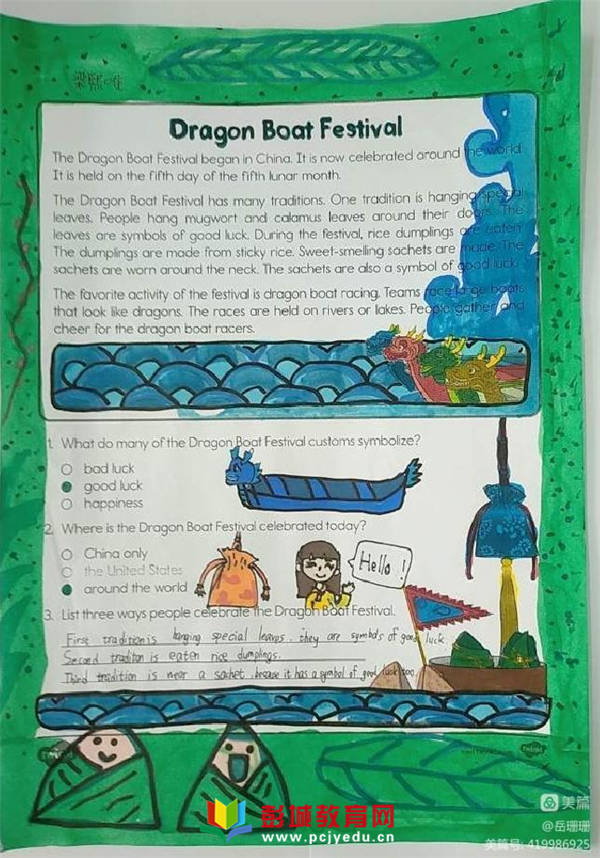 Dragon Boat Festival
The Dragon Boat Festival began in China. It is now celebrated around the world.
It is held on the fifth day of the fifth lunar month.
The Dragon Boat Festival has many traditions. One tradition is hanging special
leaves. People hang mugwort and calamus leaves around their doors. The
leaves are symbols of good luck. During the festival, rice dumplings are eaten.
The dumplings are made from sticky rice. Sweet-smelling sachets are made. The
sachets are worn around the neck. The sachets are also a symbol of good luck.
The favorite activity of the festival is dragon boat racing. Teams race large boats
that look like dragons. The races are held on rivers or lakes. People gather and
cheer for the dragon boat racers.
1. What do many of the Dragon Boat Festival customs symbolize?
bad luck
good luck
happiness
2. Where is the Dragon Boat Festival celebrated today?
China only
the United States
around the world
Hello!
3. List three ways people celebrate the Dragon Boat Festival.
First tradition is hanging special leaves. they are symbols of good luck
Second tradition is eaten rice dumplings.
Third tradition is wear a sachet. because it has a symbol of good luck too.
twinkl
彭城教育网
www.pcjyedu.cn
美篇
@岳珊珊
美篇号: 419986925